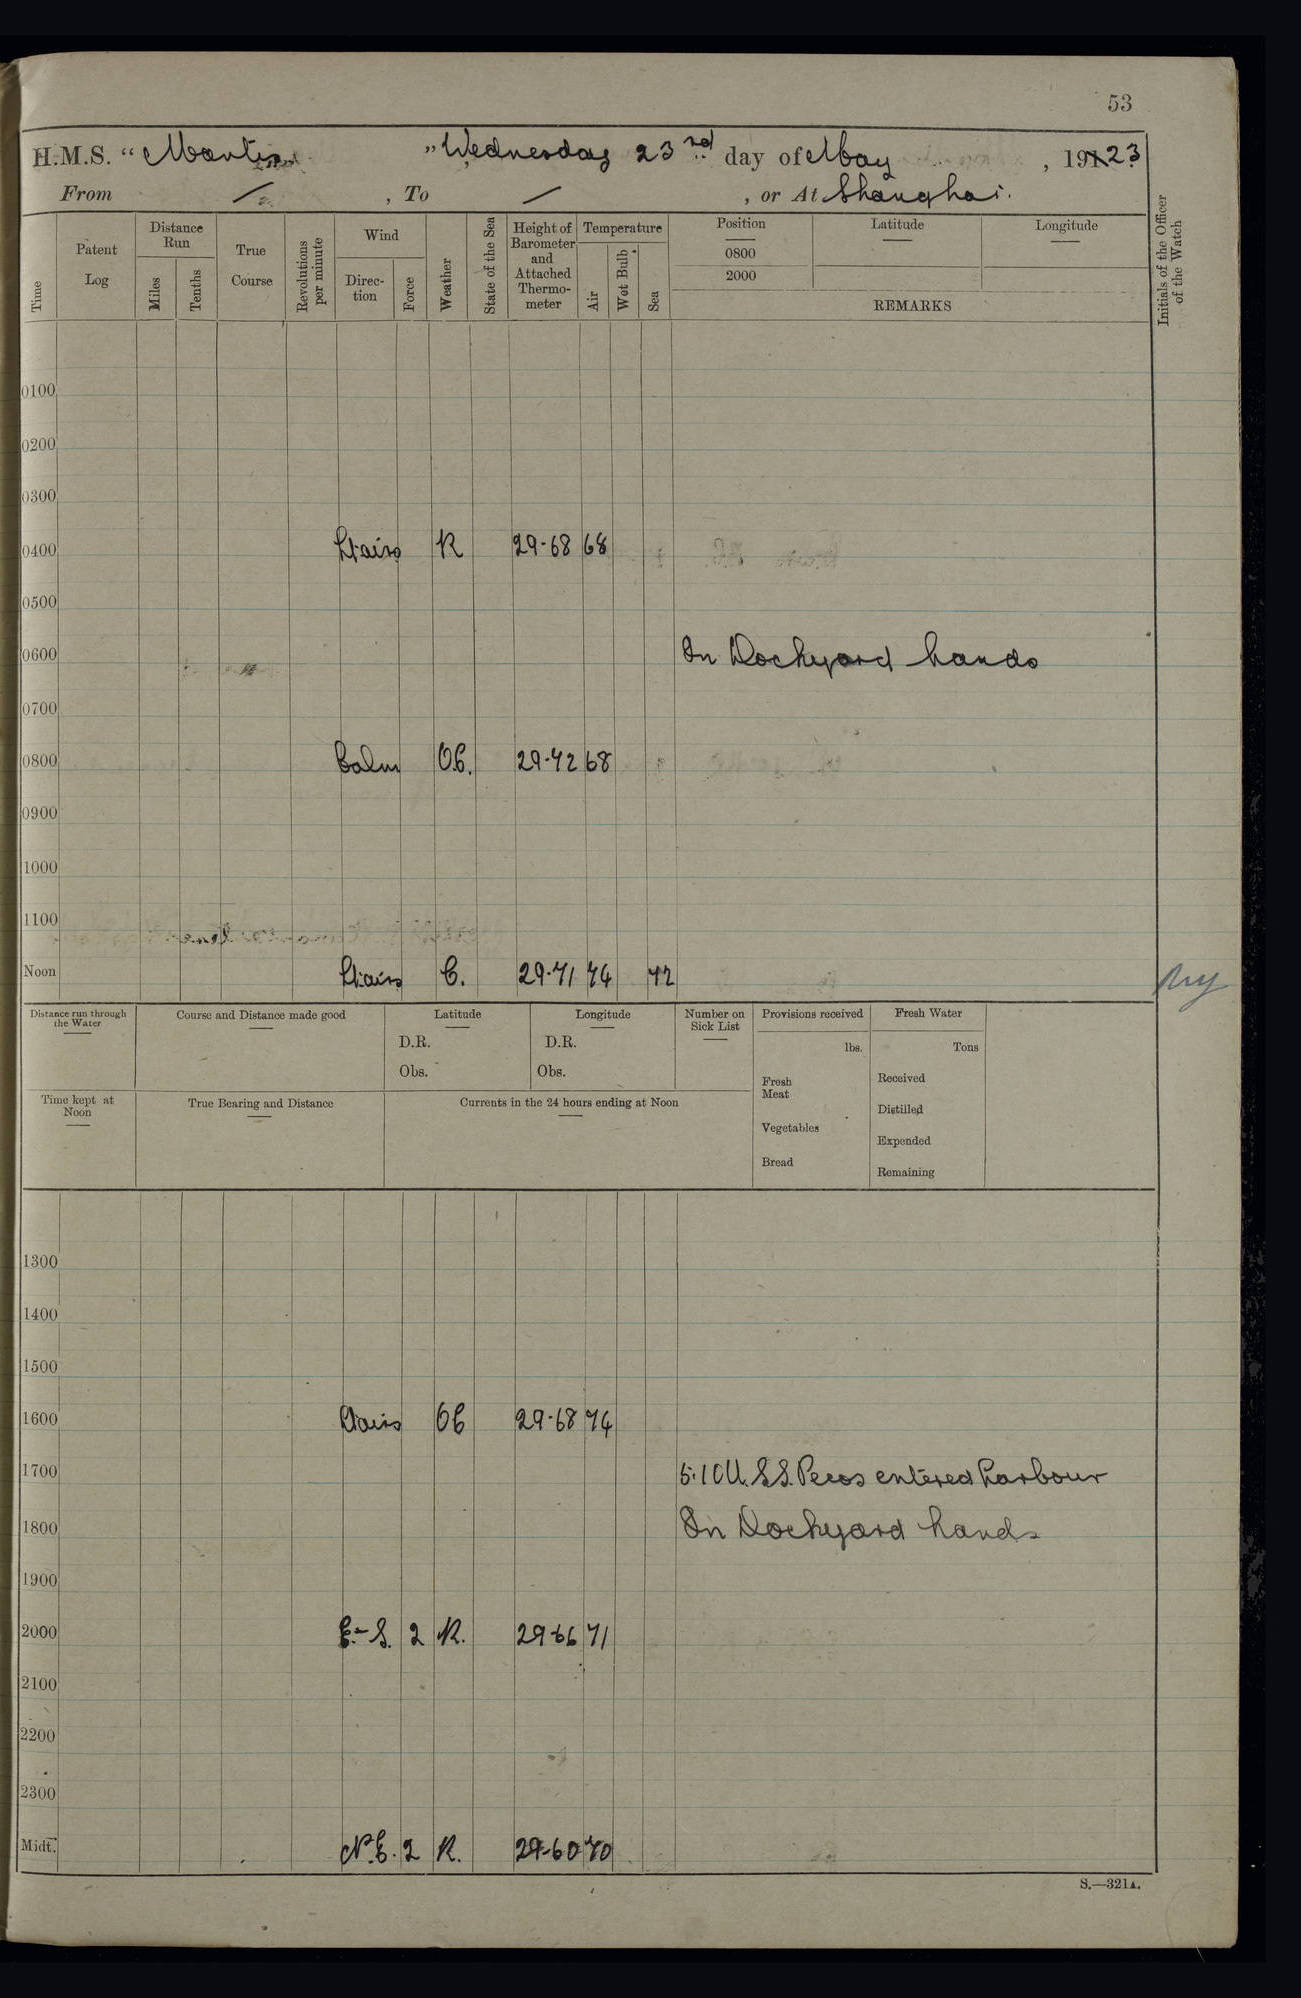 53
H.M.S. “Mantis” Wednesday 23rd day of May, 1923
From / , To / , or At Shanghai.
Time Patent Log Distance Run Miles Tenths True Course Revolutions per minute Wind Direc-tion Force Weather State of the Sea Height of Barometer and Attached Thermo-meter Temperature Air Wet Bulb Sea Position 0800 2000 Latitude Longitude REMARKS Initials of the Officer of the Watch
0100
0200
0300
0400 Lt airs R 29.68 68
0500
0600 In Dockyard hands
0700
0800 Calm O.C. 29.72 68
0900
1000
1100
Noon Lt airs C. 29.71 74 72
Distance run through the Water Course and Distance made good Latitude Longitude Number on Sick List Provisions received Fresh Water
D.R. D.R. lbs. Tons
Obs. Obs. Fresh Meat Received
Time kept at Noon True Bearing and Distance Currents in the 24 hours ending at Noon Vegetables Distilled
Expended
Bread Remaining
1300
1400
1500
1600 Lt airs OC 29.68 74
1700 5.10 U.S.S. Pecos entered harbour
1800 In Dockyard hands
1900
2000 E-S. 2 R. 29.66 71
2100
2200
2300
Midt. N.E. 2 R. 29.60 70
S.—321A.